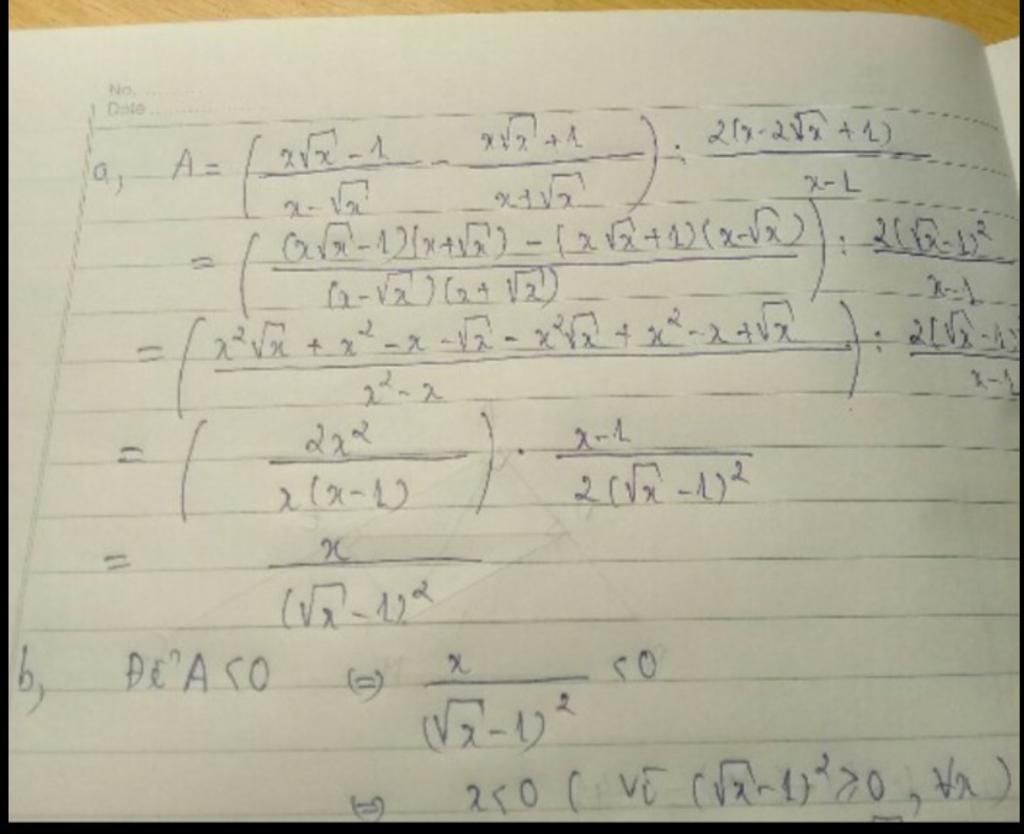 No. ........
Date ..................
a, A = ( (x√x - 1)/(x - √x) - (x√x + 1)/(x + √x) ) : 2(x - 2√x + 1)/(x - 1)
= ( ((x√x - 1)(x + √x) - (x√x + 1)(x - √x))/((x - √x)(x + √x)) ) : 2(√x - 1)²/(x - 1)
= ( (x²√x + x² - x - √x - x²√x + x² - x + √x)/(x² - x) ) : 2(√x - 1)/(x - 1)
= ( 2x²/(x(x - 1)) ) . (x - 1)/(2(√x - 1)²)
= x/(√x - 1)²
b, Để A < 0 (=) x/(√x - 1)² < 0
(=) x < 0 ( Vì (√x - 1)² ≥ 0, ∀x )